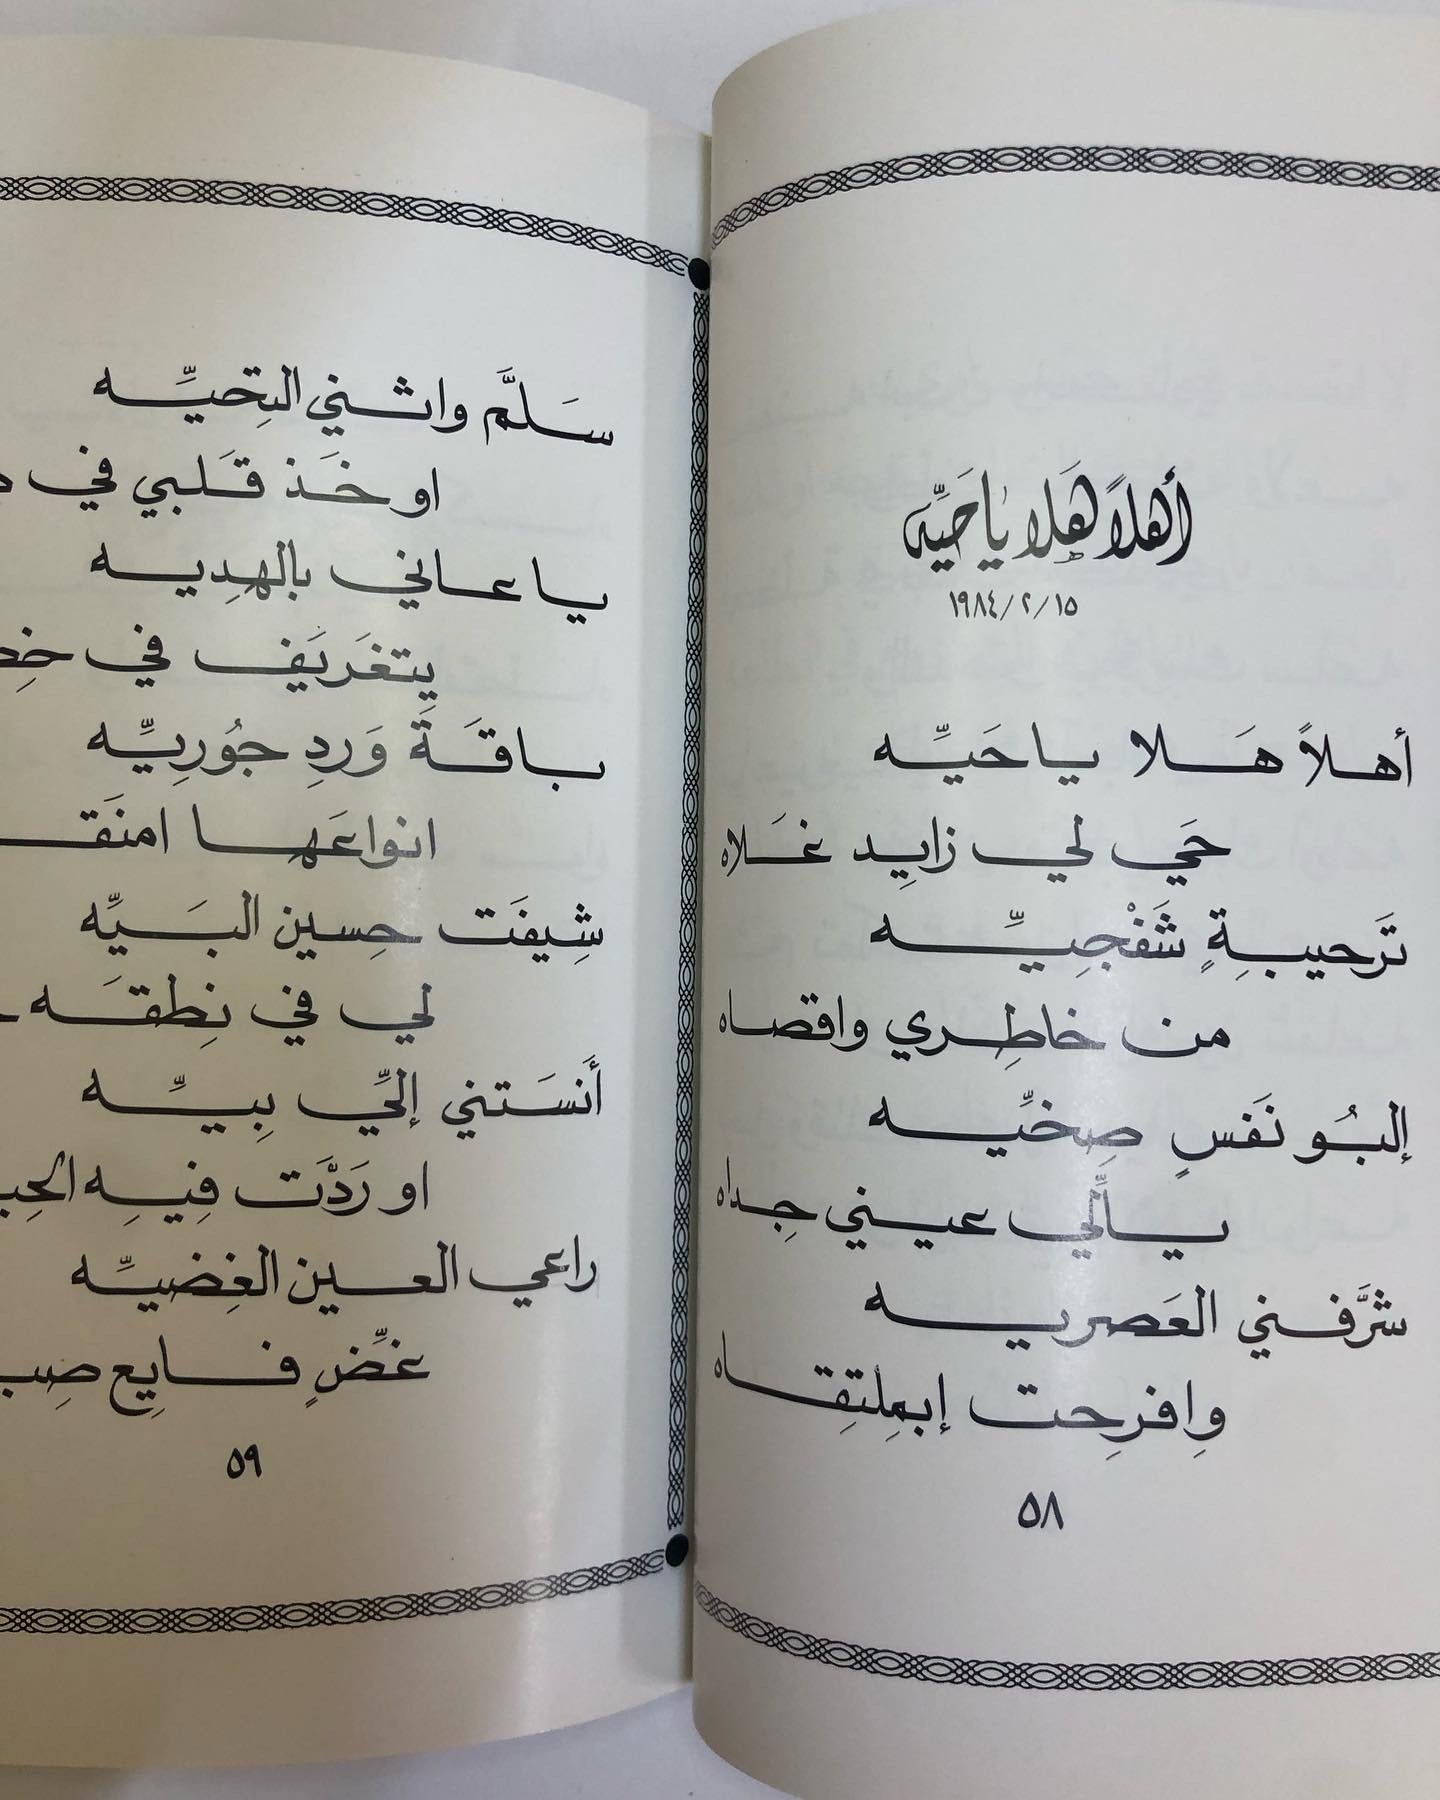 أهلاً هَلا يا حَيِّه
١٩٨٤/٢/١٥
أهلاً هَلا ياحَيِّه
حَي لي زايِد غَلاه
تَرحيبةٍ شَفْجِيِّه
من خاطِري واقصاه
إلبُو نَفسٍ صِخيِّه
يالِّلي عيني حِداه
شرَّفني العَصريه
وِافرِحت إبمِلتِقاه
٥٨
سَلَّم واثني التِحيِّه
او خَذ قَلبي في
يا عاني بالهِديه
يتغَريَف في
باقَةَ وَردِ جُورِيِّه
انواعَها
شِيفَت حِسين البَيِّه
لي في نِطقَه
أَنسَتني إليِّ بِيِّه
او رَدَّت فِيهِ
راعي العين الغِضيِّه
غضِّ فايِع
٥٩